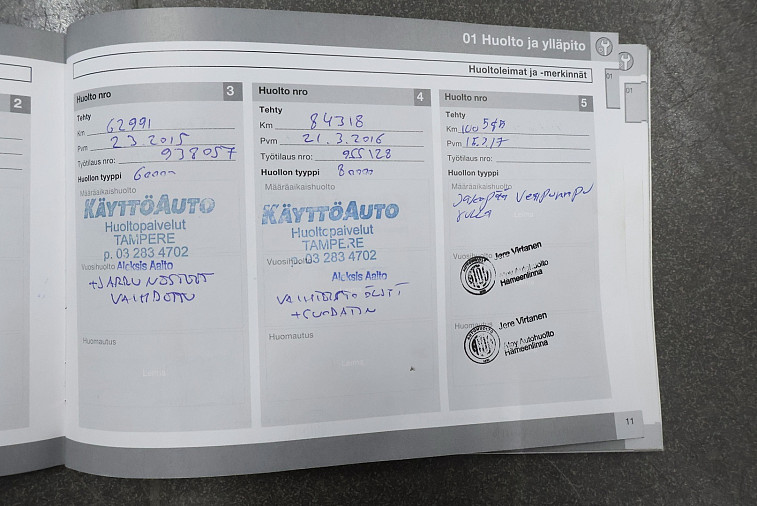 01 Huolto ja ylläpito
Huoltoleimat ja -merkinnät
01
01
2
Huolto nro 3
Tehty
Km 62991
Pvm 2.3.2015
Työtilaus nro: 938057
Huollon tyyppi 60000
Määräaikaishuolto
KÄYTTÖAUTO
Huoltopalvelut
TAMPERE
p. 03 283 4702
Vuosihuolto Aleksis Aalto
+JARRUNESTEET
VAIHDETTU
Huomautus
Leima
Huolto nro 4
Tehty
Km 84318
Pvm 21.3.2016
Työtilaus nro: 955128
Huollon tyyppi 80000
Määräaikaishuolto
KÄYTTÖAUTO
Huoltopalvelut
TAMPERE
p. 03 283 4702
Vuosihuolto
Aleksis Aalto
VAIHTEISTO ÖLJYT
+SUODATIN
Huomautus
Leima
Huolto nro 5
Tehty
Km
Pvm
Työtilaus nro:
Huollon tyyppi
Määräaikaishuolto
Jakopää Vesipumppu
Leima
Vuosihuolto
Jere Virtanen
Atoy Autohuolto
Hämeenlinna
Huomautus
Jere Virtanen
Atoy Autohuolto
Hämeenlinna
11